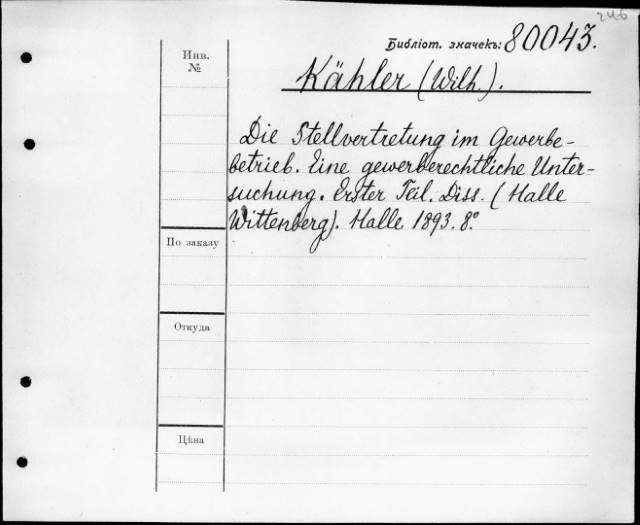 246
Библіот. значекъ: 80043.
Инв.
№
Kähler (Wilh.).
Die Stellvertretung im Gewerbe-
betrieb. Eine gewerberechtliche Unter-
suchung. Erster Teil. Diss. (Halle
Wittenberg). Halle 1893. 8°.
По заказу
Откуда
Цѣна